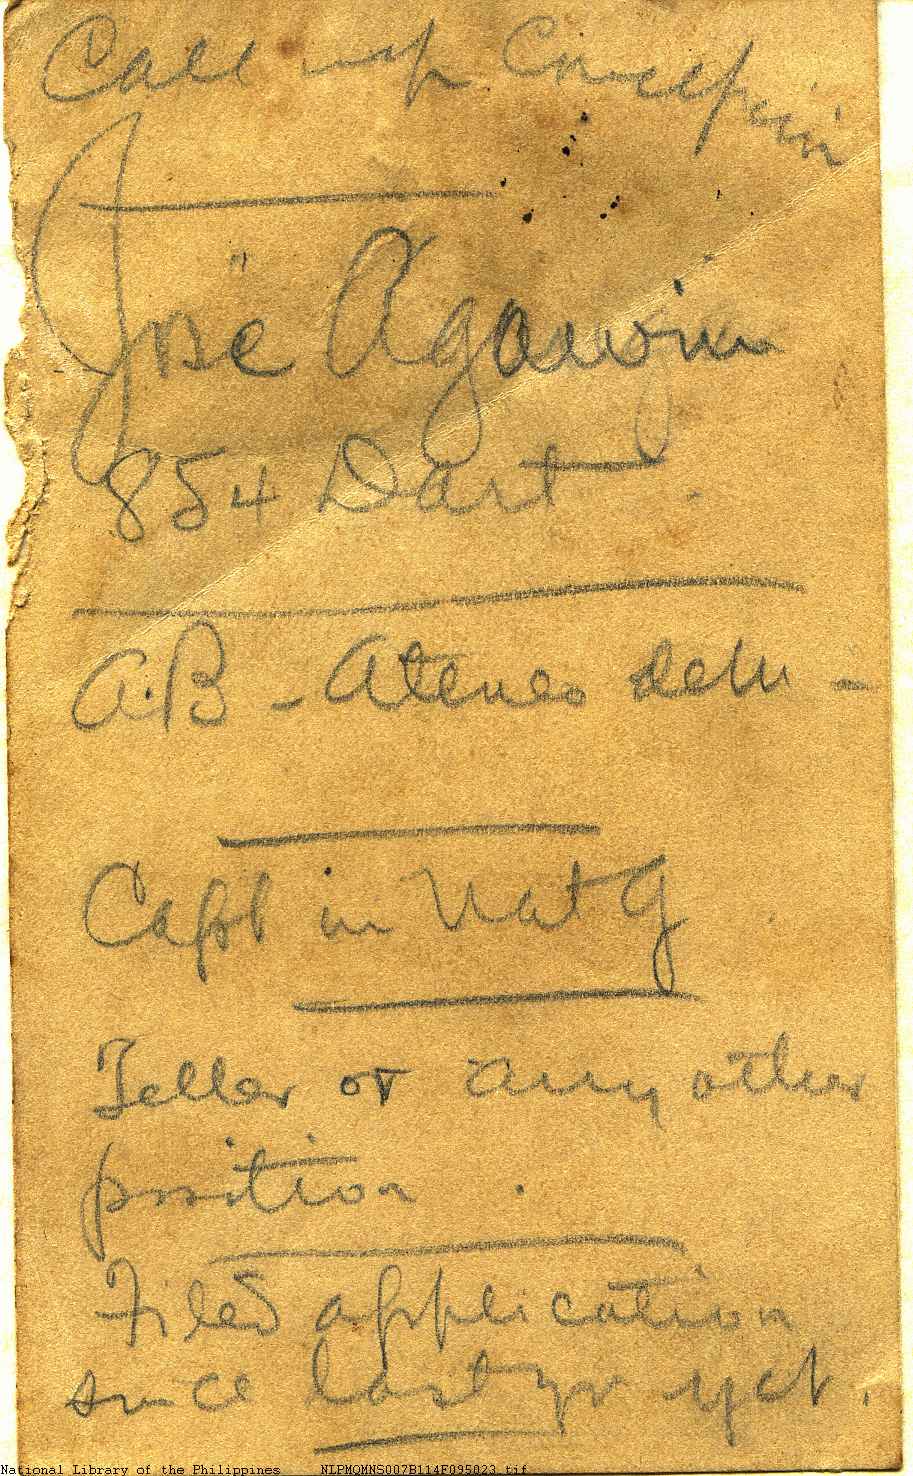 Call up Concepcion
Jose Agawin
854 Dart
A.B - Ateneo de M -
Capt in Nat G
Teller or any other
position .
Filed application
since last yr yet.
National Library of the Philippines NLPMQMNS007B114F095023.tif